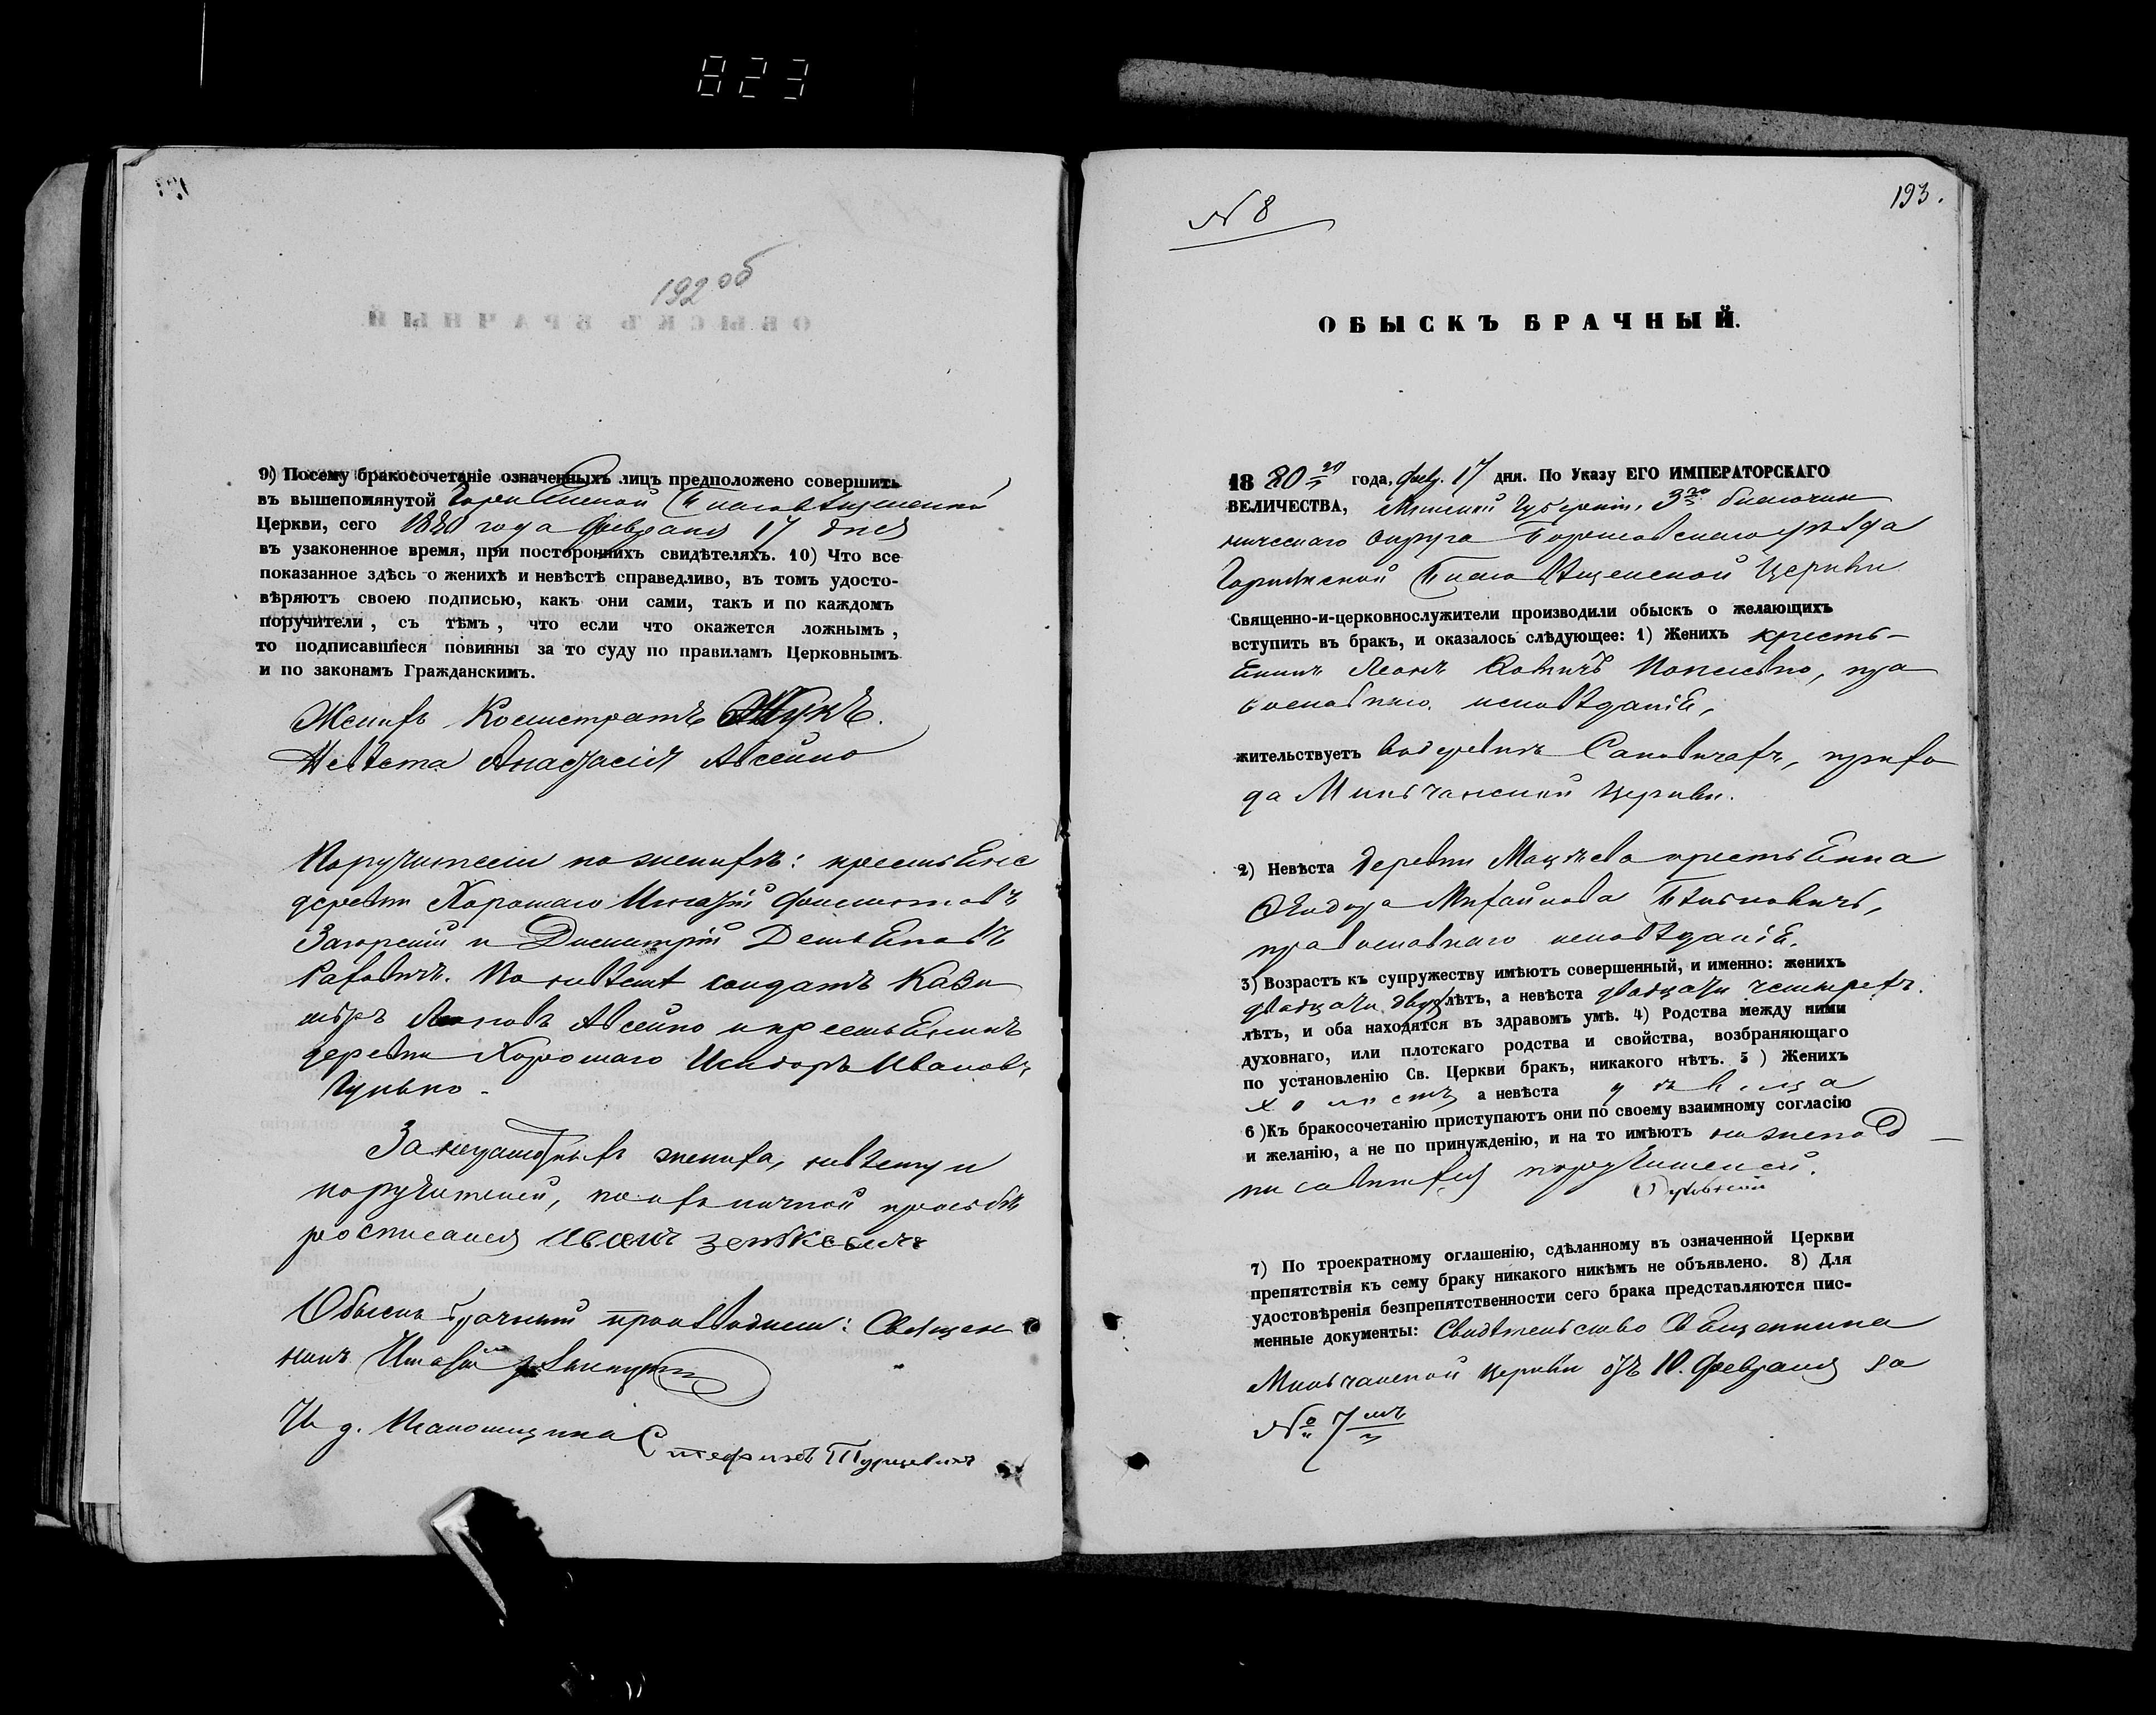 823
192 об
9) Посему бракосочетаніе означенныхъ лицъ предположено совершить
въ вышепомянутой Благовѣщенской
Церкви, сего 1880 года Февраля 17 дня
въ узаконенное время, при постороннихъ свидѣтеляхъ. 10) Что все
показанное здѣсь о женихѣ и невѣстѣ справедливо, въ томъ удосто-
вѣряютъ своею подписью, какъ они сами, такъ и по каждомъ
поручители, съ тѣмъ, что если что окажется ложнымъ,
то подписавшіеся повинны за то суду по правиламъ Церковнымъ
и по законамъ Гражданскимъ.
Женихъ Калистратъ Жукъ.
Невѣста Анастасія Авсейко
Поручители по женихѣ: крестьяне
деревни Хорошаго Игнатій
Загорскій и Димитрій Демьяновъ
Рафовичъ. По невѣстѣ солдатъ Кази
міръ Авсейко и крестьянинъ
деревни Хорошаго Исидоръ Ивановъ
Гулько.
За неграмотныхъ жениха, невѣсту и
поручителей, по ихъ личной просьбѣ
росписался Иванъ Зенькевичъ
Обыскъ брачный производили: Священ
никъ
И д. Псаломщика Стефанъ Турцевичъ
N 8
193.
ОБЫСКЪ БРАЧНЫЙ.
1880 го года, Февр. 17 дня. По Указу ЕГО ИМПЕРАТОРСКАГО
ВЕЛИЧЕСТВА, Минской Губерніи, 3го благочин
ническаго округа Борисовскаго уѣзда
Благовѣщенской Церкви
Священно-и-церковнослужители производили обыскъ о желающихъ
вступить въ бракъ, и оказалось слѣдующее: 1) Женихъ кресть-
янинъ Леонъ пра
вославнаго исповѣданія,
жительствуетъ въ деревнѣ Саковичахъ, прихо
да Мильчанской Церкви.
2) Невѣста деревни крестьянка
Михайлова
православнаго исповѣданія.
3) Возрастъ къ супружеству имѣютъ совершенный, и именно: женихъ
двадцати двухъ лѣтъ, а невѣста двадцати четырехъ.
лѣтъ, и оба находятся въ здравомъ умѣ. 4) Родства между ними
духовнаго, или плотскаго родства и свойства, возбраняющаго
по установленію Св. Церкви бракъ, никакого нѣтъ. 5) Женихъ
холостъ а невѣста дѣвица
6) Къ бракосочетанію приступаютъ они по своему взаимному согласію
и желанію, а не по принужденію, и на то имѣютъ нижепод-
писавшихся поручителей.
7) По троекратному оглашенію, сдѣланному въ означенной Церкви
препятствія къ сему браку никакого никѣмъ не объявлено. 8) Для
удостовѣренія безпрепятственности сего брака представляются пис-
менные документы: Свидѣтельство Священника
Мильчанской Церкви отъ 10. Февраля за
№ 7мъ